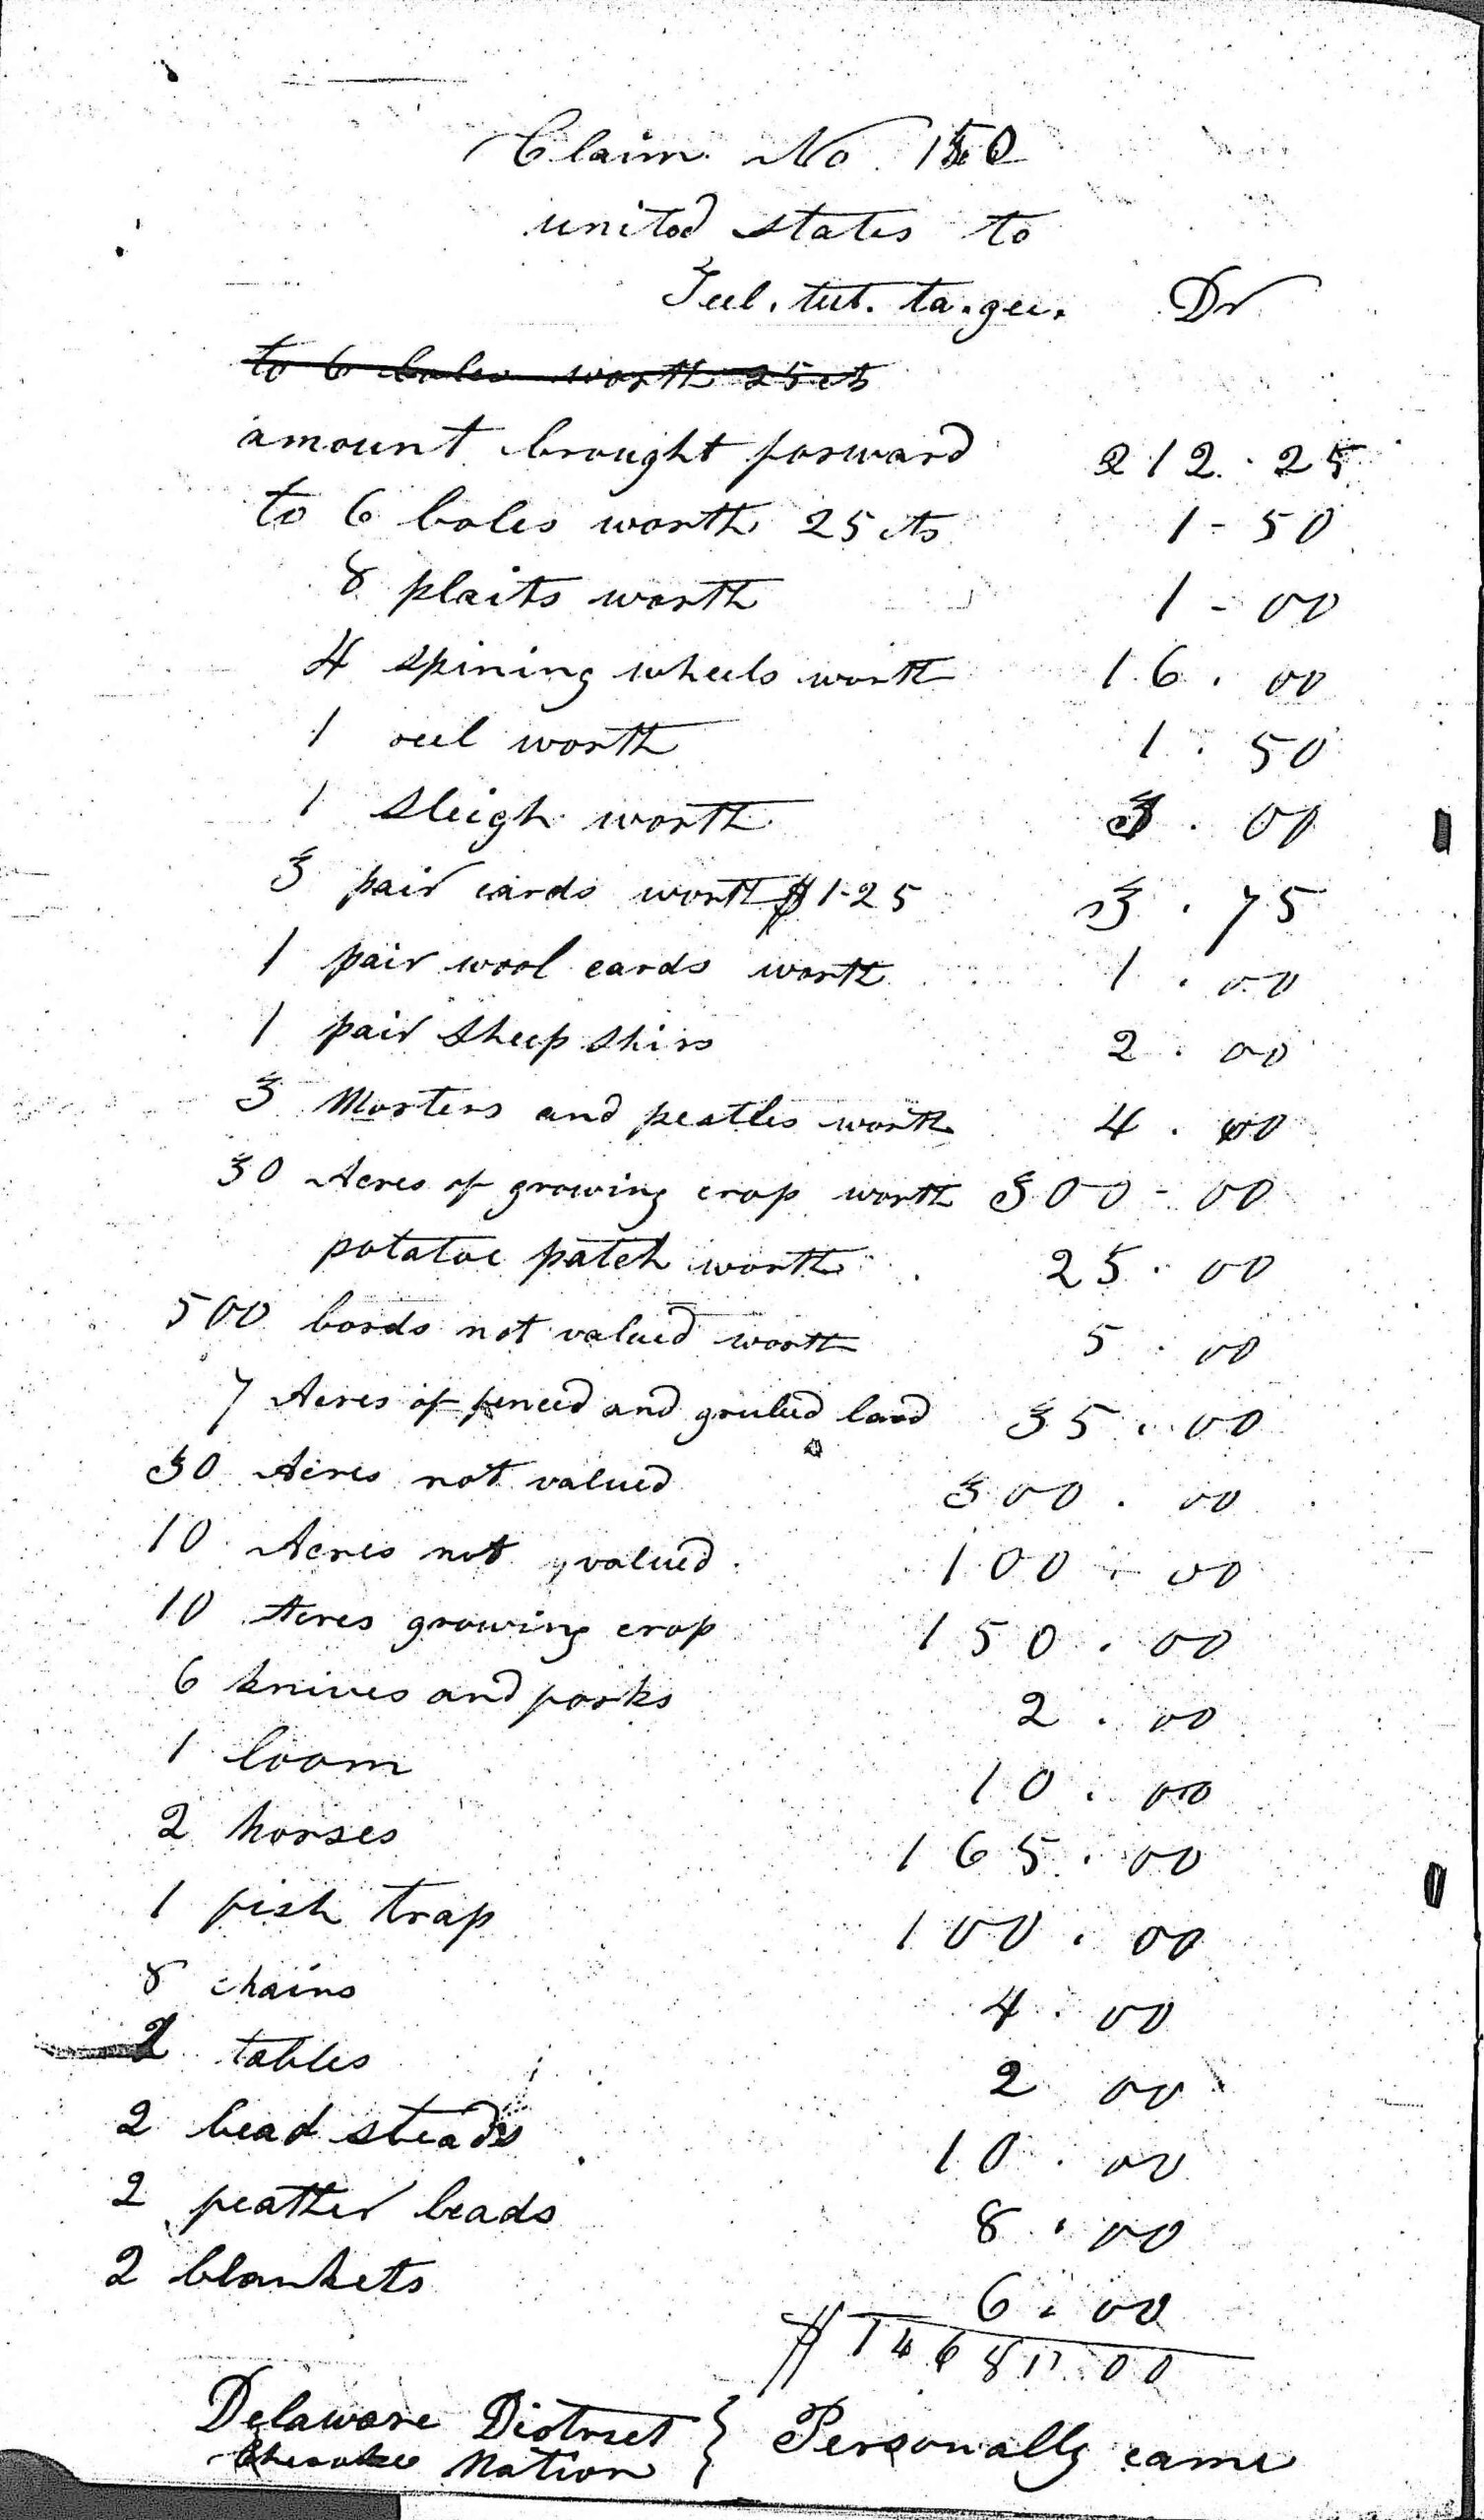 Claim No 150
united states to
Teel. tut. ta. gee. Dr
to 6 boles worth 25 cts
amount brought forward 212. 25
to 6 boles worth 25 cts 1-50
8 plaits worth 1-00
4 spining wheels worth 16. 00
1 reel worth 1. 50
1 sleigh worth 3. 00
3 pair cards worth $1-25 3. 75
1 pair wool cards worth 1. 00
1 pair sheep shirs 2. 00
3 Morters and pestles worth 4. 00
30 Acres of growing crop worth 300-00
potatoe patch worth 25. 00
500 bords not valued worth 5. 00
7 Acres of fenced and grubed land 35. 00
30 Acres not valued 300. 00
10 Acres not valued. 100. 00
10 Acres growing crop 150. 00
6 knives and forks 2. 00
1 loom 10. 00
2 horses 165. 00
1 fish trap 100. 00
8 chains 4. 00
2 tables 2 00
2 bead steads 10. 00
2 feather beads 8. 00
2 blankets 6. 00
$ 1468. 00
Delaware District } Personally came
Cherokee Nation